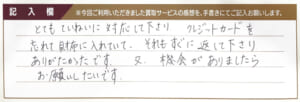 記入欄 ※今回ご利用いただきました買取サービスの感想を、手書きにてご記入お願いします。
とてもていねいに対応して下さり クレジットカードを
忘れて財布に入れていて、それもすぐに返して下さり
ありがたかったです。 又、機会がありましたら
お願いしたいです。